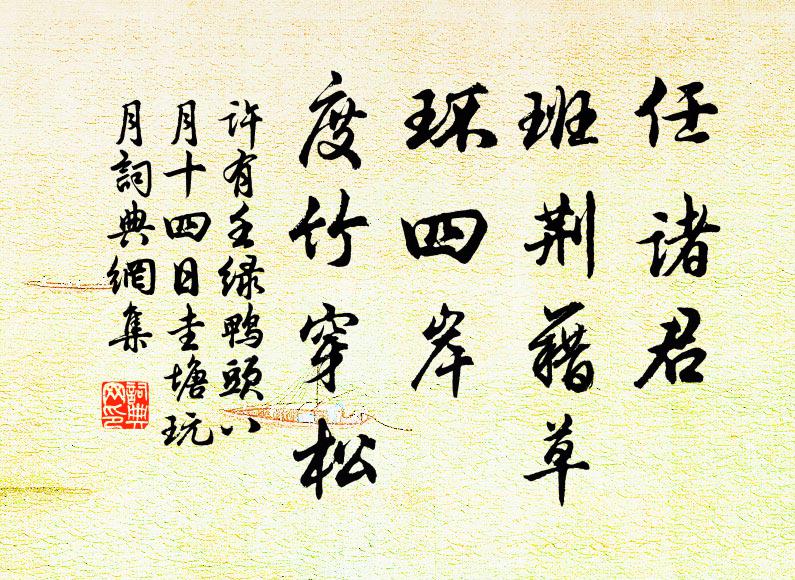 任诸君
班荆藉草
环四岸
度竹穿松
许有壬绿鸭头八
月十四日圭塘玩
月詞典網集
詞典網印